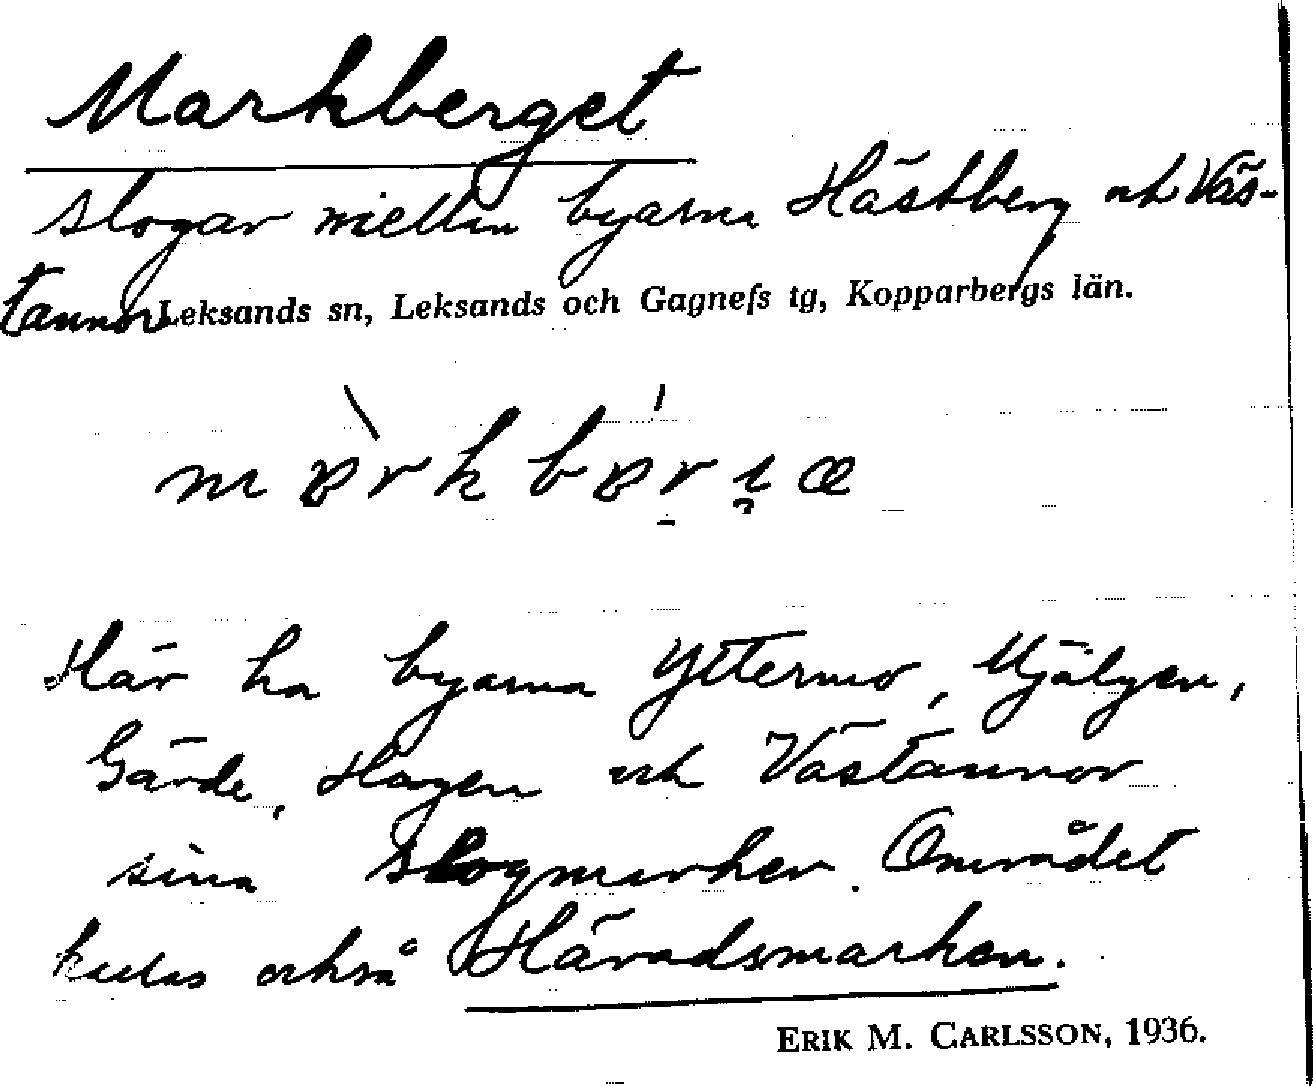 Markberget
slogar mellan byarna Hästberg och Väs-
tannor Leksands sn, Leksands och Gagnefs tg, Kopparbergs län.
Här ha byarna Yttermo, Mjälgen,
Gärde, Hagen och Västannor
sina slogmarker. Området
kallas också Häradsmarken.
ERIK M. CARLSSON, 1936.